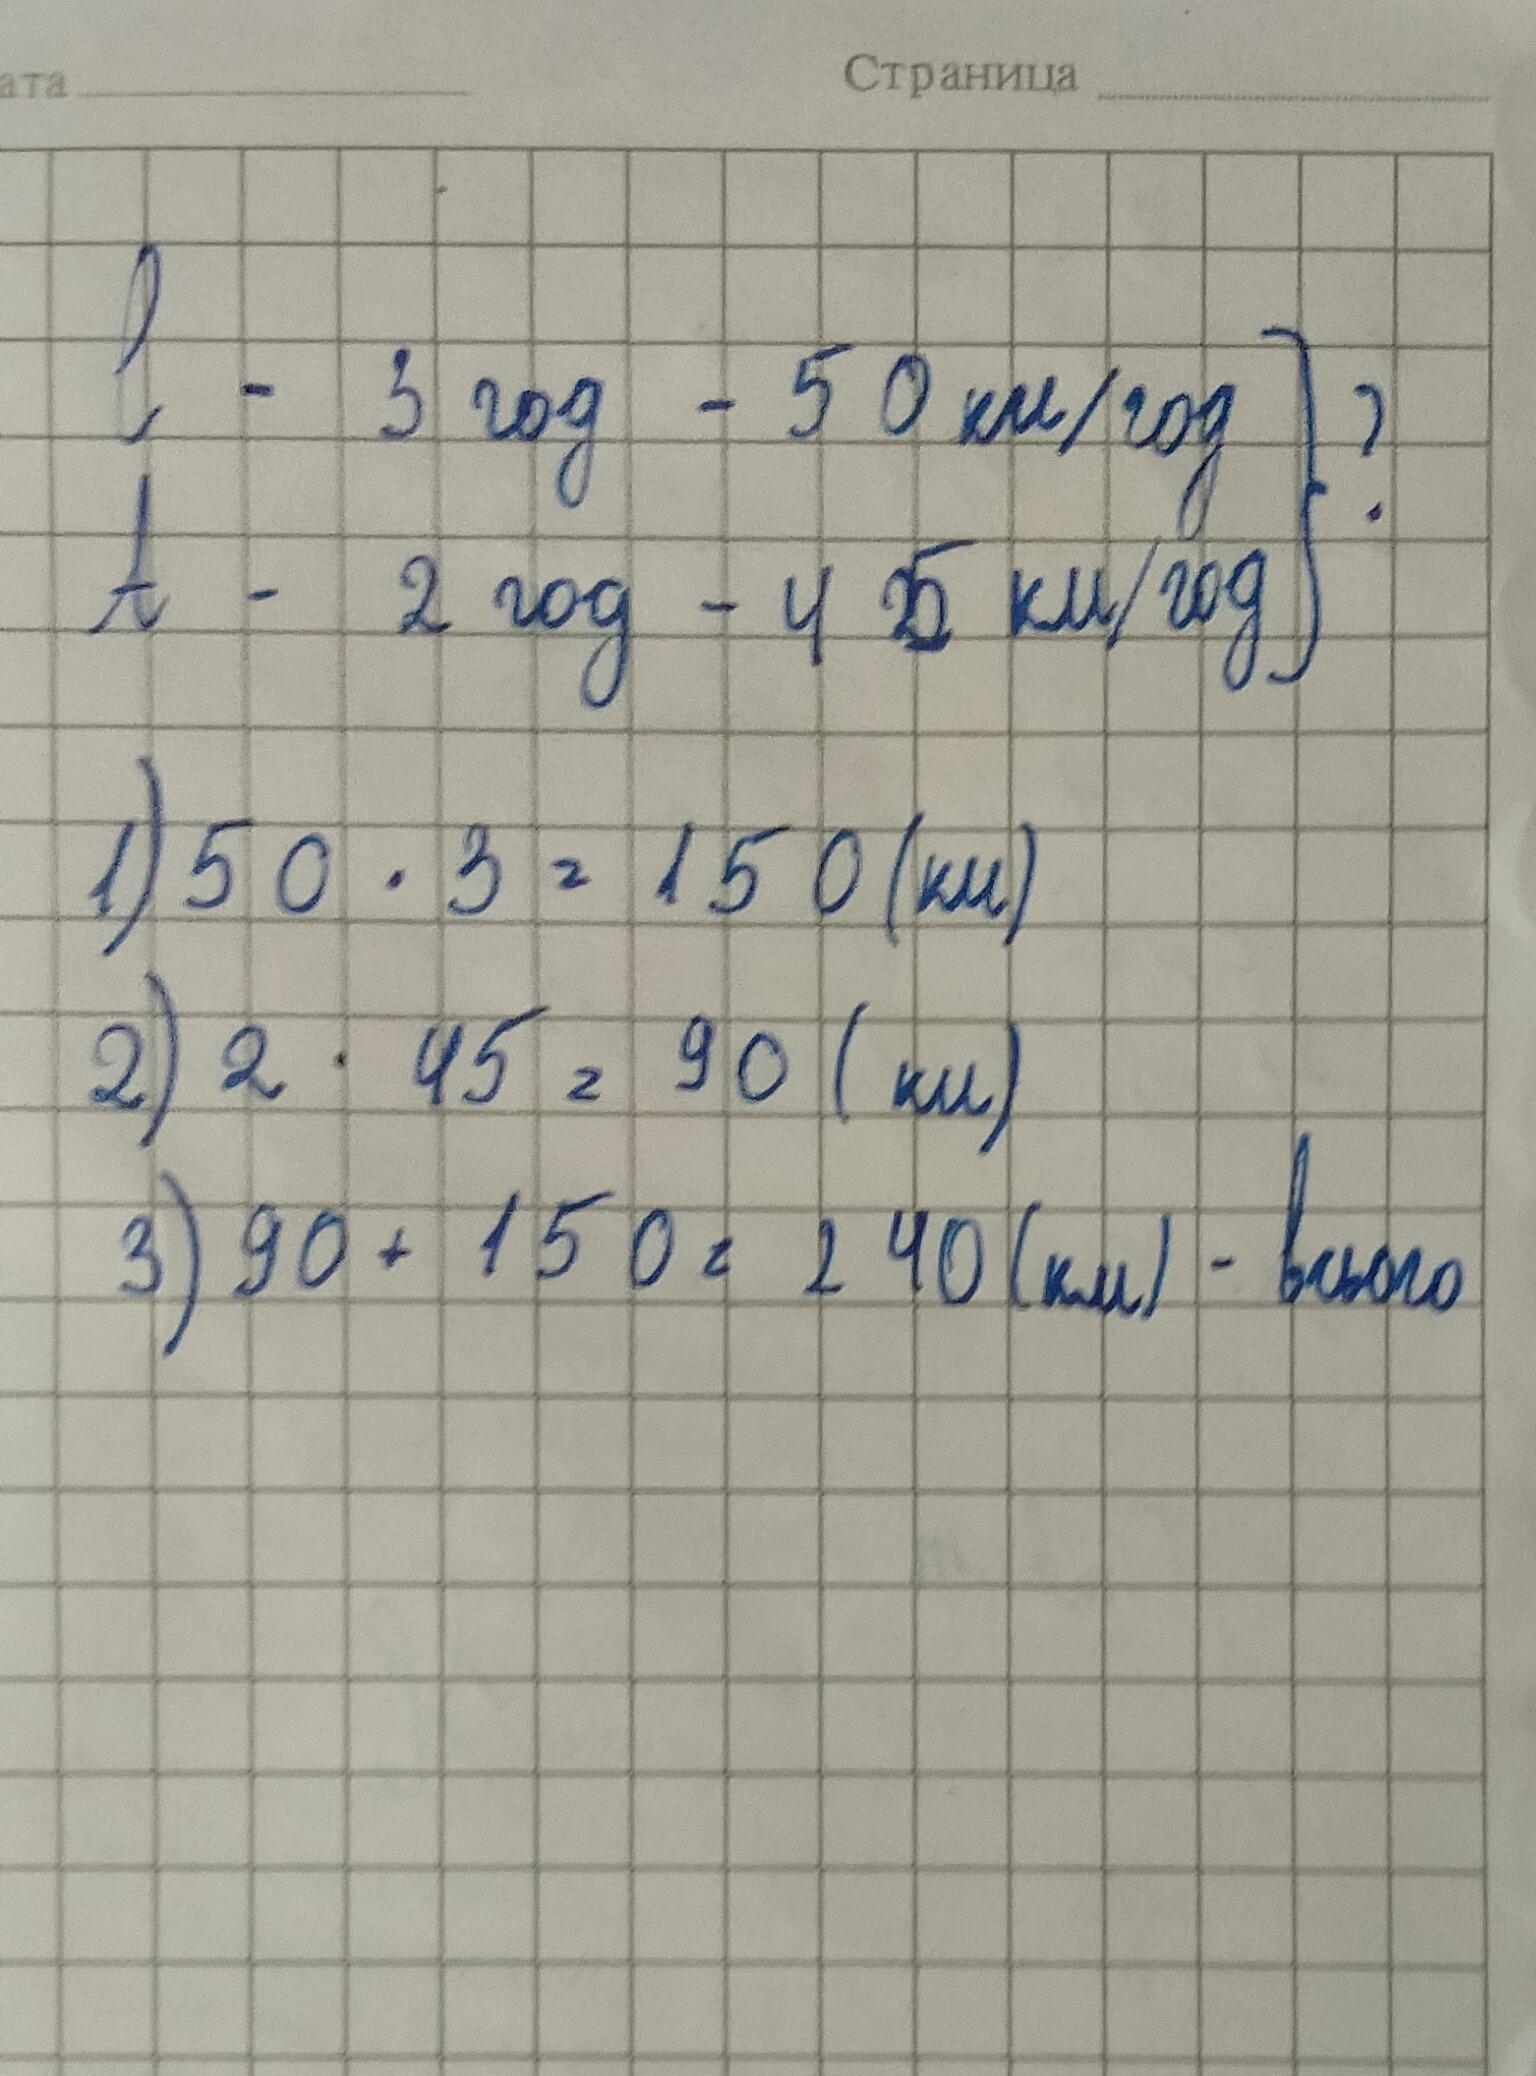 ата Страница
l - 3 год - 50 км/год } ?
t - 2 год - 45 км/год
1) 50 · 3 = 150 (км)
2) 2 · 45 = 90 (км)
3) 90 + 150 = 240 (км) - всього